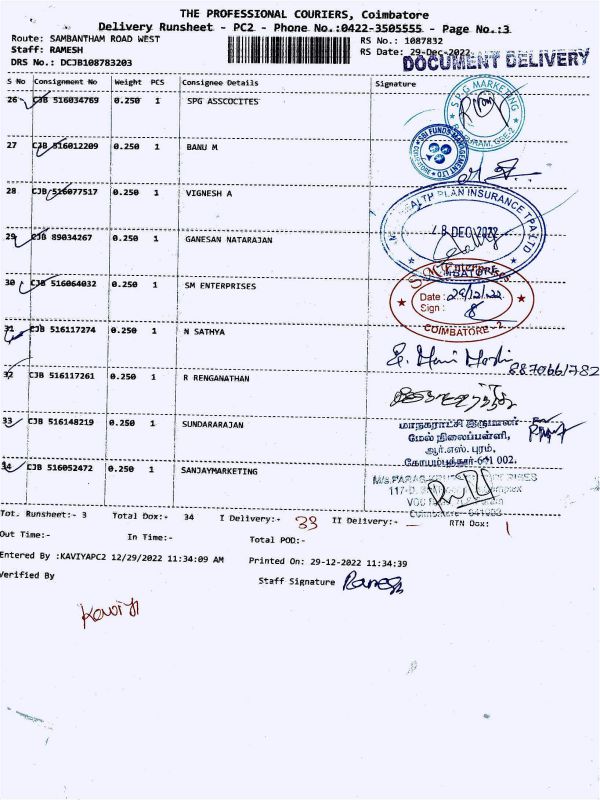 THE PROFESSIONAL COURIERS, Coimbatore
Delivery Runsheet - PC2 - Phone No.:0422-3505555 - Page No.:3
Route: SAMBANTHAM ROAD WEST
RS No.: 1087832
Staff: RAMESH
RS Date: 29-Dec-2022
DRS No.: DCJB108783203
DOCUMENT DELIVERY
S No Consignment No Weight PCS Consignee Details Signature
26 CJB 516034769 0.250 1 SPG ASSCOCITES
S.P.G MARKETING
27 CJB 516012209 0.250 1 BANU M
SBI FUNDS MANAGEMENT LTD
28 CJB 516077517 0.250 1 VIGNESH A
HEALTH PLAN INSURANCE TPA LTD
DEC 2022
29 CJB 89034267 0.250 1 GANESAN NATARAJAN
COIMBATORE
30 CJB 516064032 0.250 1 SM ENTERPRISES
S.M. Enterprises
Date: 29/12/22
Sign:
COIMBATORE-2
31 CJB 516117274 0.250 1 N SATHYA
8870661782
32 CJB 516117261 0.250 1 R RENGANATHAN
33 CJB 516148219 0.250 1 SUNDARARAJAN
மாநகராட்சி
மேல் நிலைப்பள்ளி,
ஆர்.எஸ். புரம்,
கோயம்புத்தூர்-641 002.
34 CJB 516052472 0.250 1 SANJAYMARKETING
Tot. Runsheet:- 3 Total Dox:- 34 I Delivery:- 33 II Delivery:- — RTN Dox: 1
Out Time:- In Time:- Total POD:-
Entered By :KAVIYAPC2 12/29/2022 11:34:09 AM Printed On: 29-12-2022 11:34:39
Verified By Staff Signature Ramesh
Kaviya